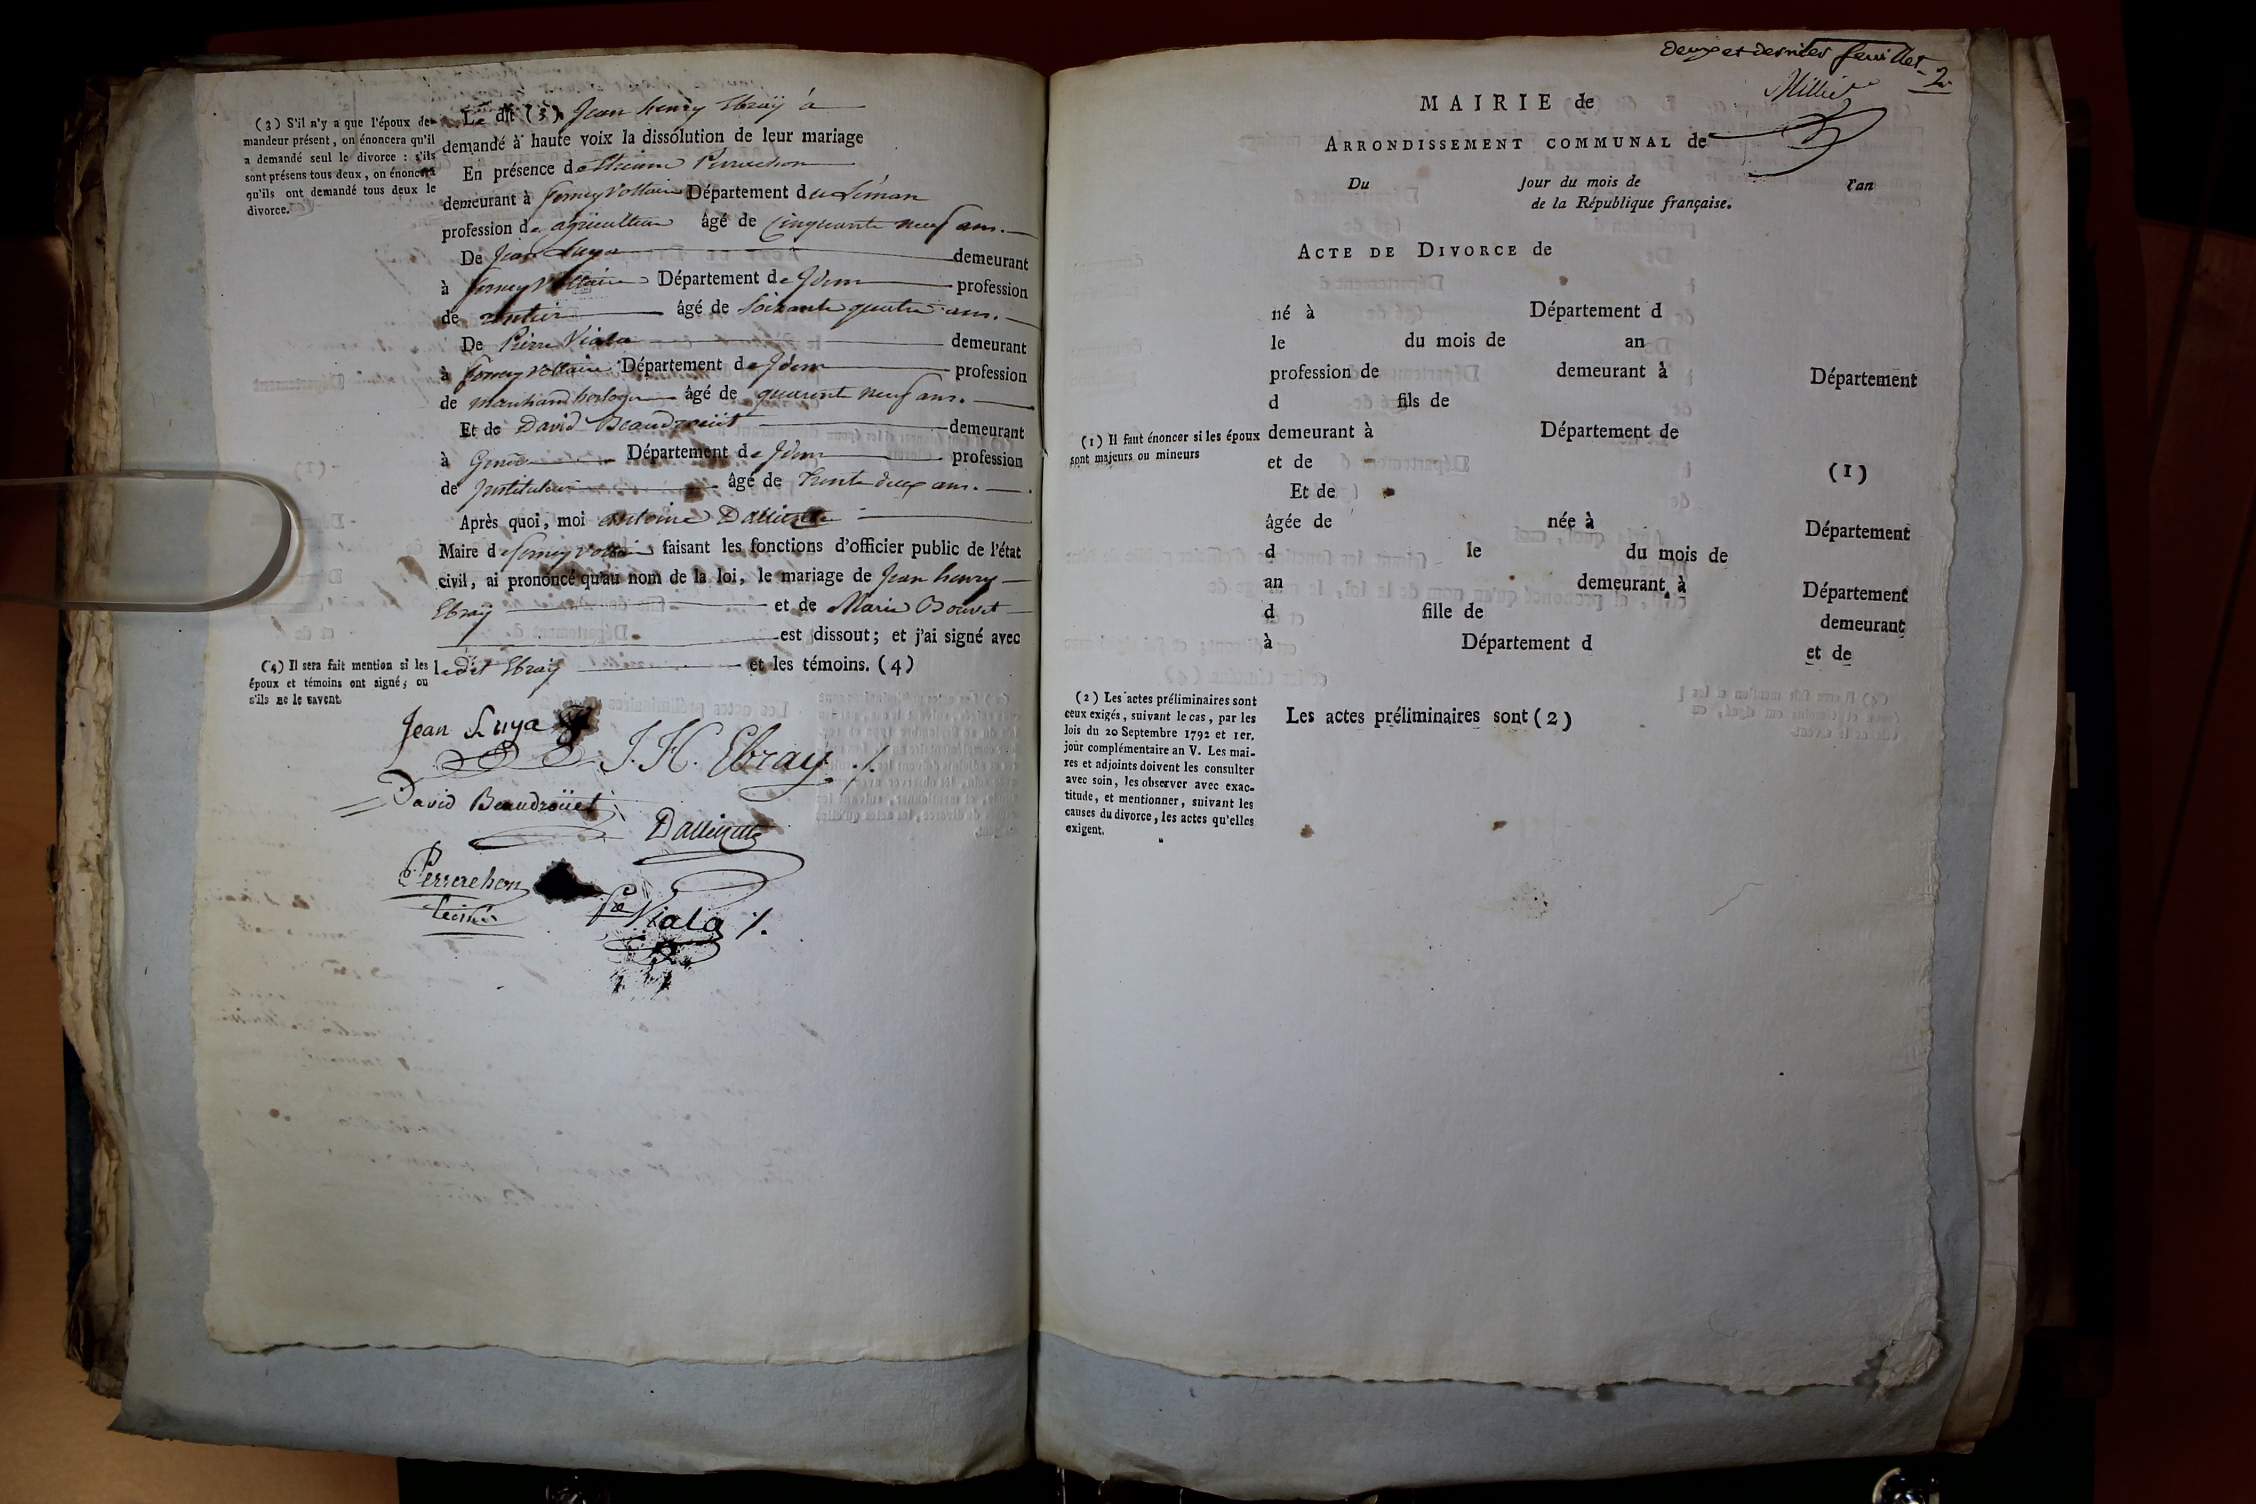 (3) S'il n'y a que l'époux de-
mandeur présent, on énoncera qu'il
a demandé seul le divorce : s'ils
sont présens tous deux, on énoncera
qu'ils ont demandé tous deux le
divorce.
Le dit (3) Jean henry Ebraÿ à
demandé à haute voix la dissolution de leur mariage
En présence de Etienne Perrachon
demeurant à ferney Voltaire Département du Léman
profession de agriculteur âgé de Cinquante neuf ans.
De Jean Luya demeurant
à ferney Voltaire Département de Idem profession
de rentier âgé de Soixante quatre ans.
De Pierre Viala demeurant
à ferney Voltaire Département de Idem profession
de marchand horloger âgé de quarente neuf ans.
Et de David Beaudroüet demeurant
à Genève Département de Idem profession
de Instituteur âgé de trente deux ans.
Après quoi, moi antoine Dallizette
Maire de ferney voltaire faisant les fonctions d'officier public de l'état
civil, ai prononcé qu'au nom de la loi, le mariage de Jean henry
Ebraÿ et de Marie Bouvet
est dissout; et j'ai signé avec
le dit Ebraÿ et les témoins. (4)
(4) Il sera fait mention si les
époux et témoins ont signé; ou
s'ils ne le savent.
Jean Luya
J. H. Ebray
David Beaudroüet
Dallizette
Perrachon
Viala
deux et dernier feuillet
2
MAIRIE de
ARRONDISSEMENT COMMUNAL de
Du Jour du mois de l'an
de la République française.
ACTE DE DIVORCE de
né à Département d
le du mois de an
profession de demeurant à Département
d fils de
(1) Il faut énoncer si les époux
sont majeurs ou mineurs
demeurant à Département de
et de (1)
Et de
âgée de née à Département
d le du mois de
an demeurant à Département
d fille de demeurant
à Département d et de
(2) Les actes préliminaires sont
ceux exigés, suivant le cas, par les
lois du 20 Septembre 1792 et 1er.
jour complémentaire an V. Les mai-
res et adjoints doivent les consulter
avec soin, les observer avec exac-
titude, et mentionner, suivant les
causes du divorce, les actes qu'elles
exigent.
Les actes préliminaires sont (2)